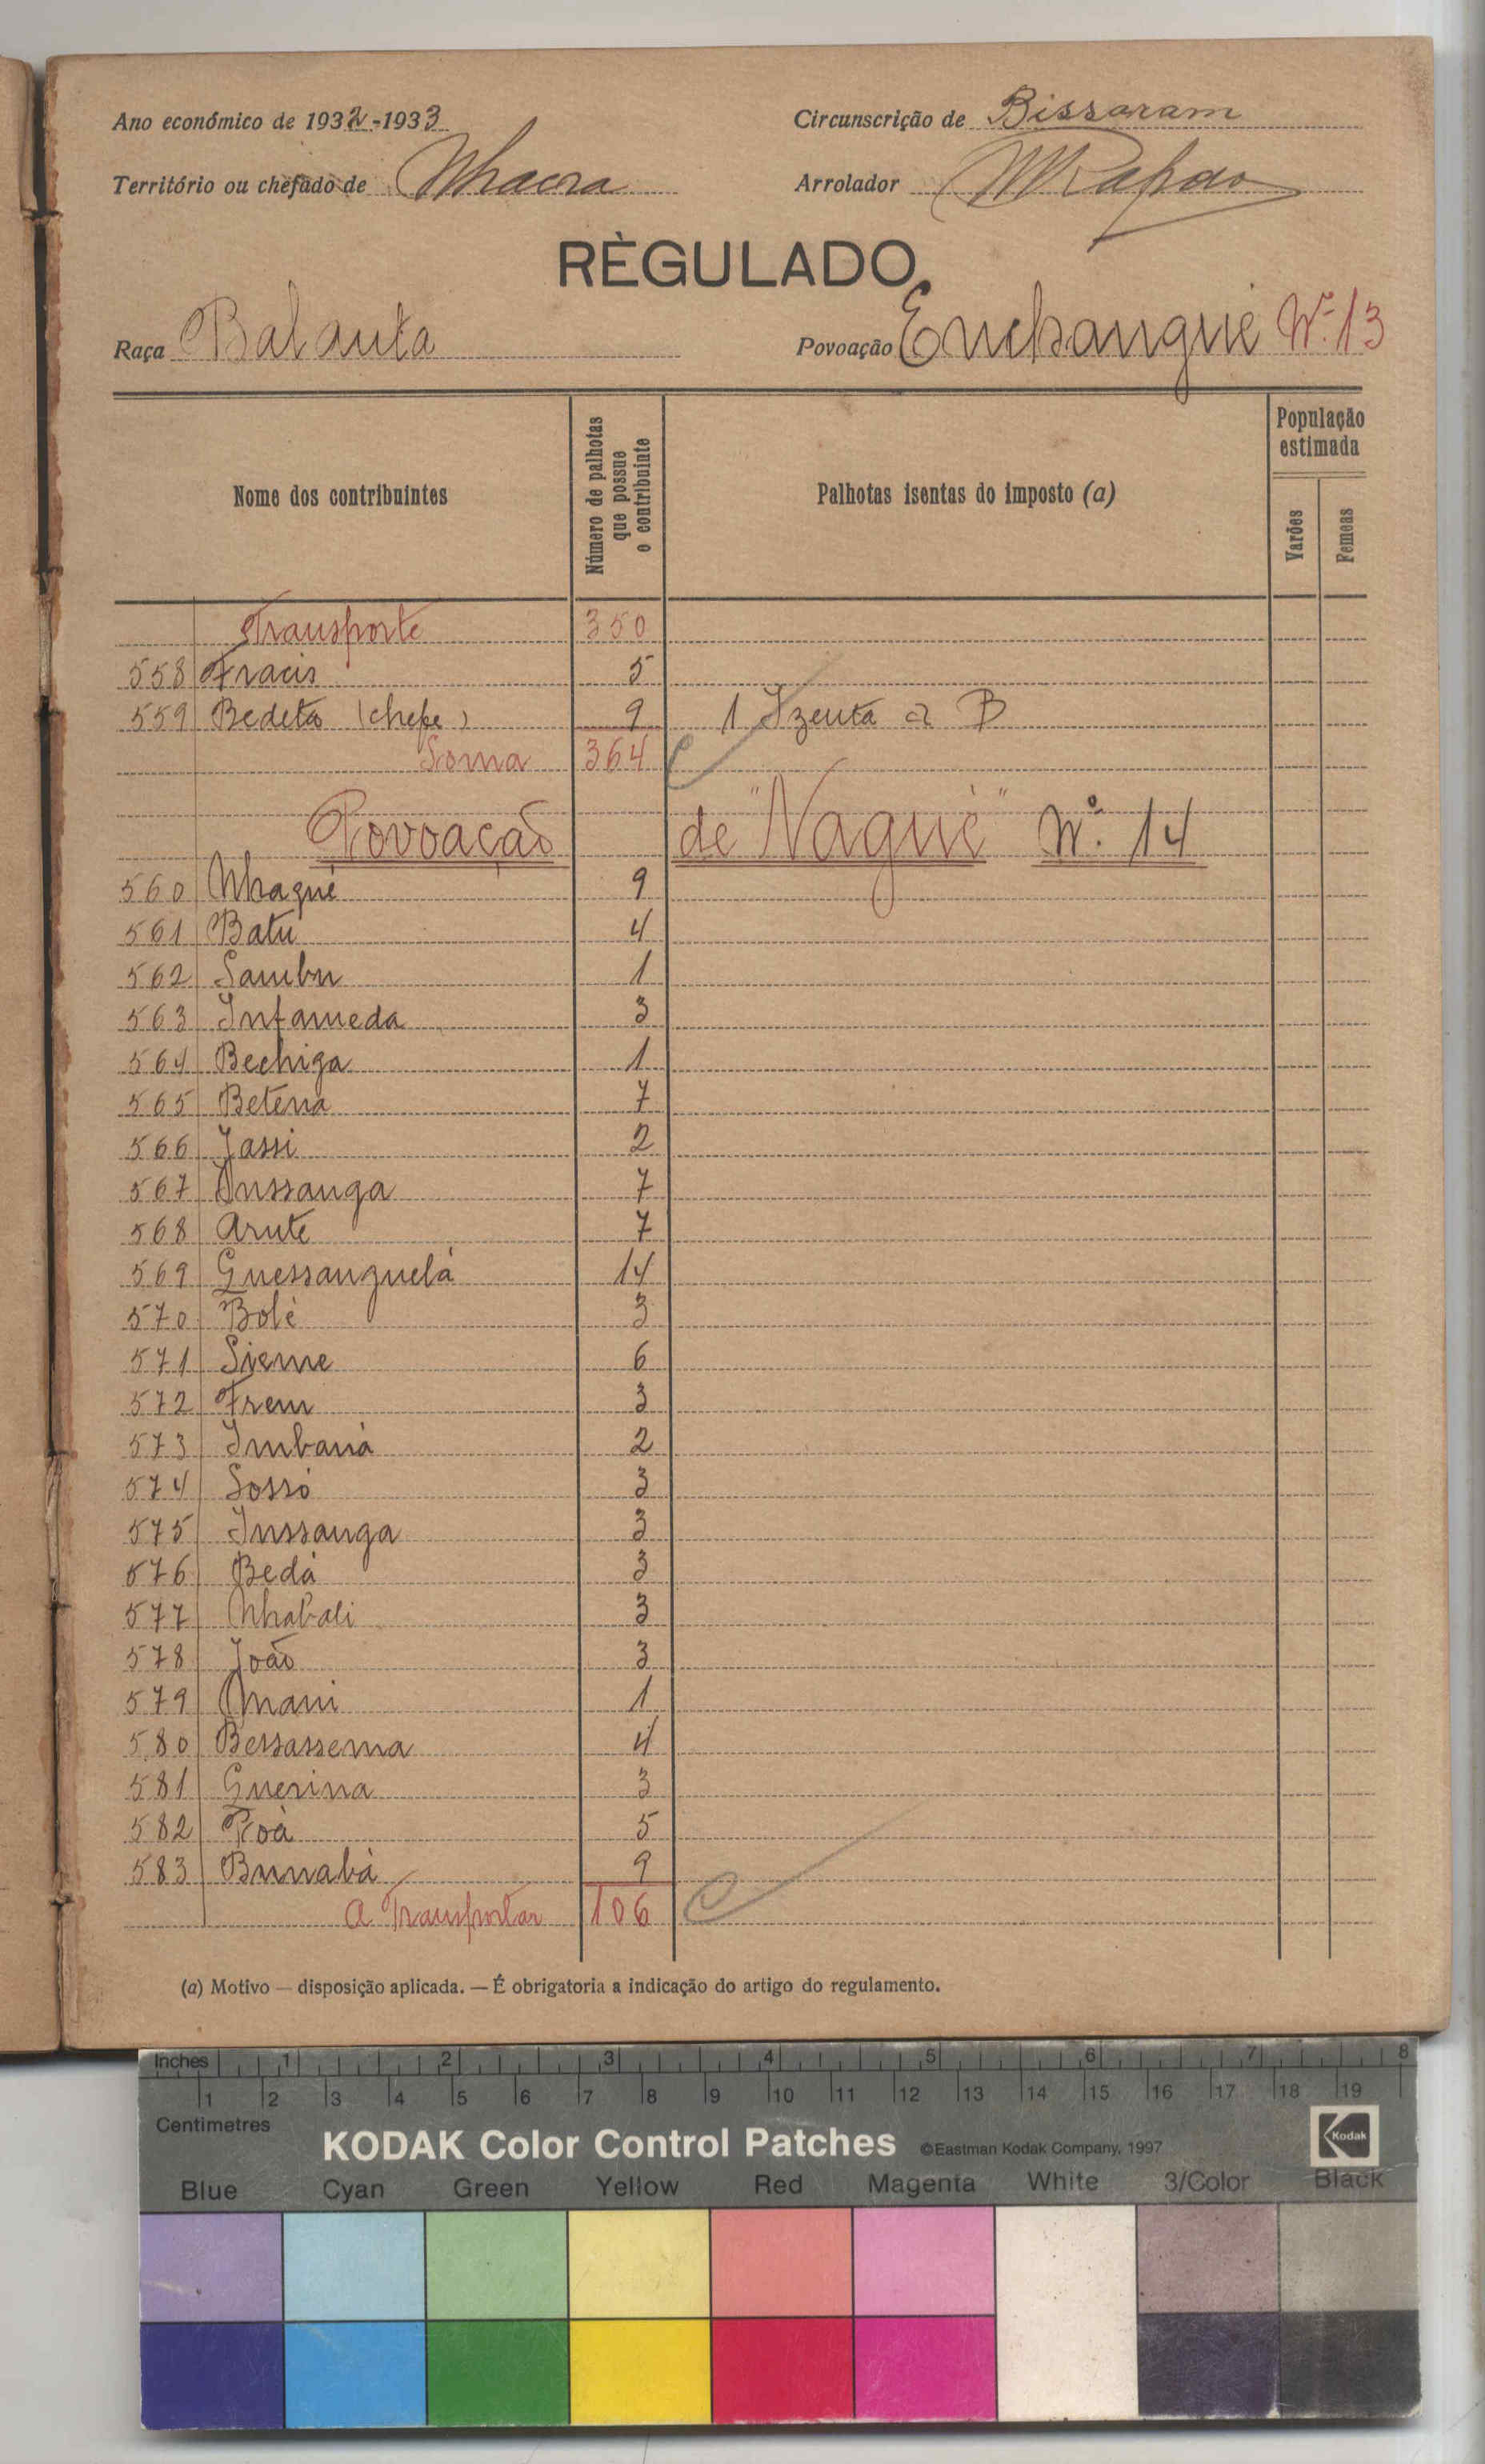 Ano económico de 1932-1933 Circunscrição de Bissoram
Território ou chefado de Nhacra Arrolador
RÈGULADO
Raça Balanta Povoação Enchangue Nº 13
Nome dos contribuintes Número de palhotas que possue o contribuinte Palhotas isentas do imposto (a) População estimada Varões Femeas
Transporte 350
558 Fracis 5
559 Bedeta (chefe) 9 1 Izenta a B
Soma 364
Povoação de "Nague" Nº 14
560 Nhaque 9
561 Batu 4
562 Sambu 1
563 Intameda 3
564 Bechiga 1
565 Betena 7
566 Jassi 2
567 Anssanga 7
568 Arute 7
569 Guessanguelá 14
570 Bolé 3
571 Sieme 6
572 Frem 3
573 Imbaná 2
574 Sossó 3
575 Inssanga 3
576 Bedá 3
577 Nhabali 3
578 João 3
579 Mani 1
580 Bessassema 4
581 Guerina 3
582 Poá 5
583 Bunabá 9
A Transportar 106
(a) Motivo — disposição aplicada. — É obrigatoria a indicação do artigo do regulamento.
Inches 1 2 3 4 5 6 7 8
1 2 3 4 5 6 7 8 9 10 11 12 13 14 15 16 17 18 19
Centimetres
KODAK Color Control Patches ©Eastman Kodak Company, 1997 Kodak
Blue Cyan Green Yellow Red Magenta White 3/Color Black